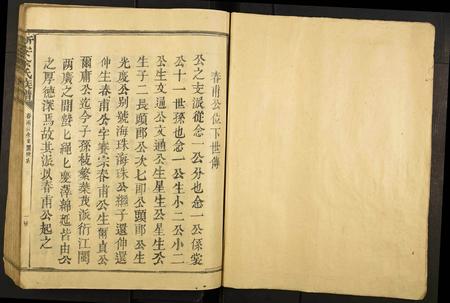 春甫公位下世傳
公之支派從念一公分也念一公係裳
公十一世孫也念一公生小二公小二
公生文通公文通公生星公星公
生子二長頭郎公次七郎公頭郎公生
先度公别號海珠海珠公繼子還伸還
伸生春甫公字賽宗春甫公生爾貞公
爾庸公迄今子孫枝繁葉茂派衍江閩
兩廣之間蟄乜繩乜慶澤綿延皆由公
之厚德深焉故其派以春甫公起之